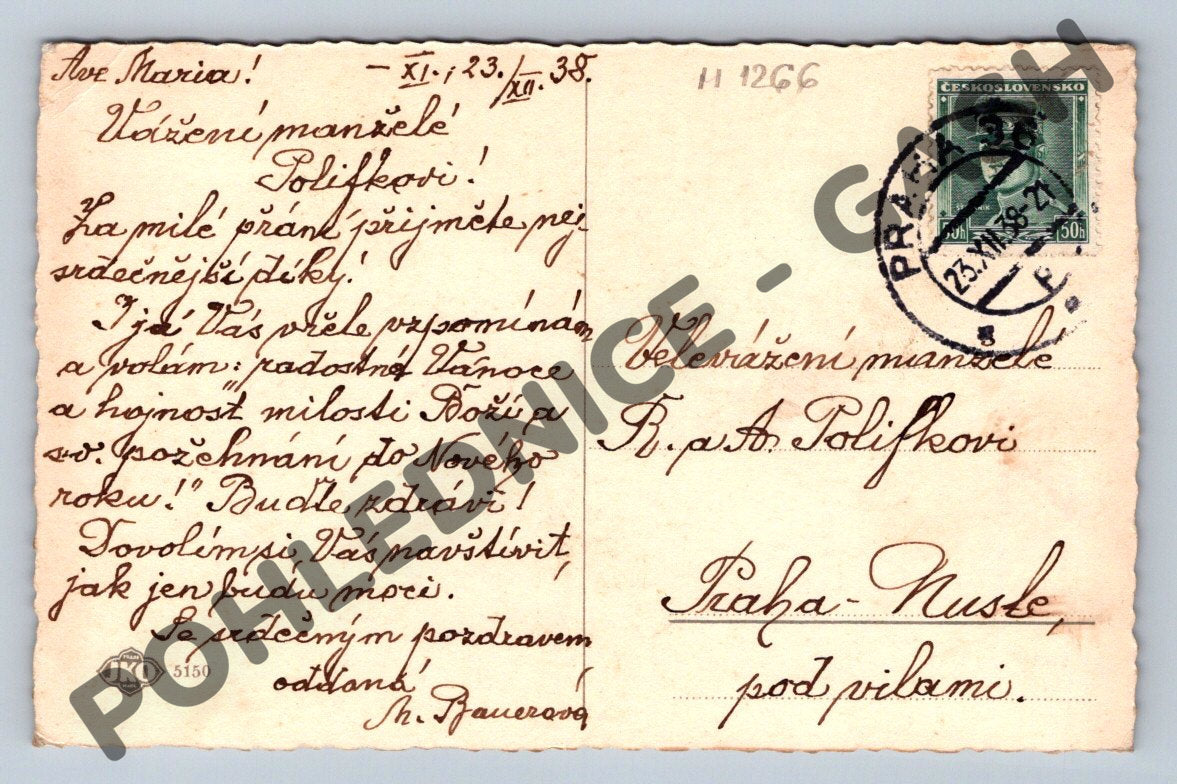 Ave Maria! – XI., 23./XII. 38.
Vážení manželé
Polifkovi!
Za milé přání přijměte nej-
srdečnější díky!
I já Vás vřele vzpomínám
a volám: radostné Vánoce
a hojnost milosti Boží a
sv. požehnání do Nového
roku!" Buďte zdrávi!
Dovolím si Vás navštívit,
jak jen budu moci.
Se srdečným pozdravem
oddaná
M. Bauerová
JKO 5150
11 1266
ČESKOSLOVENSKO
50h 50h
PRAHA 36
23.XII.38-21
8
Velevážení manželé
R. a A. Polifkovi
Praha - Nusle,
pod vilami.
POHLEDNICE - GACH